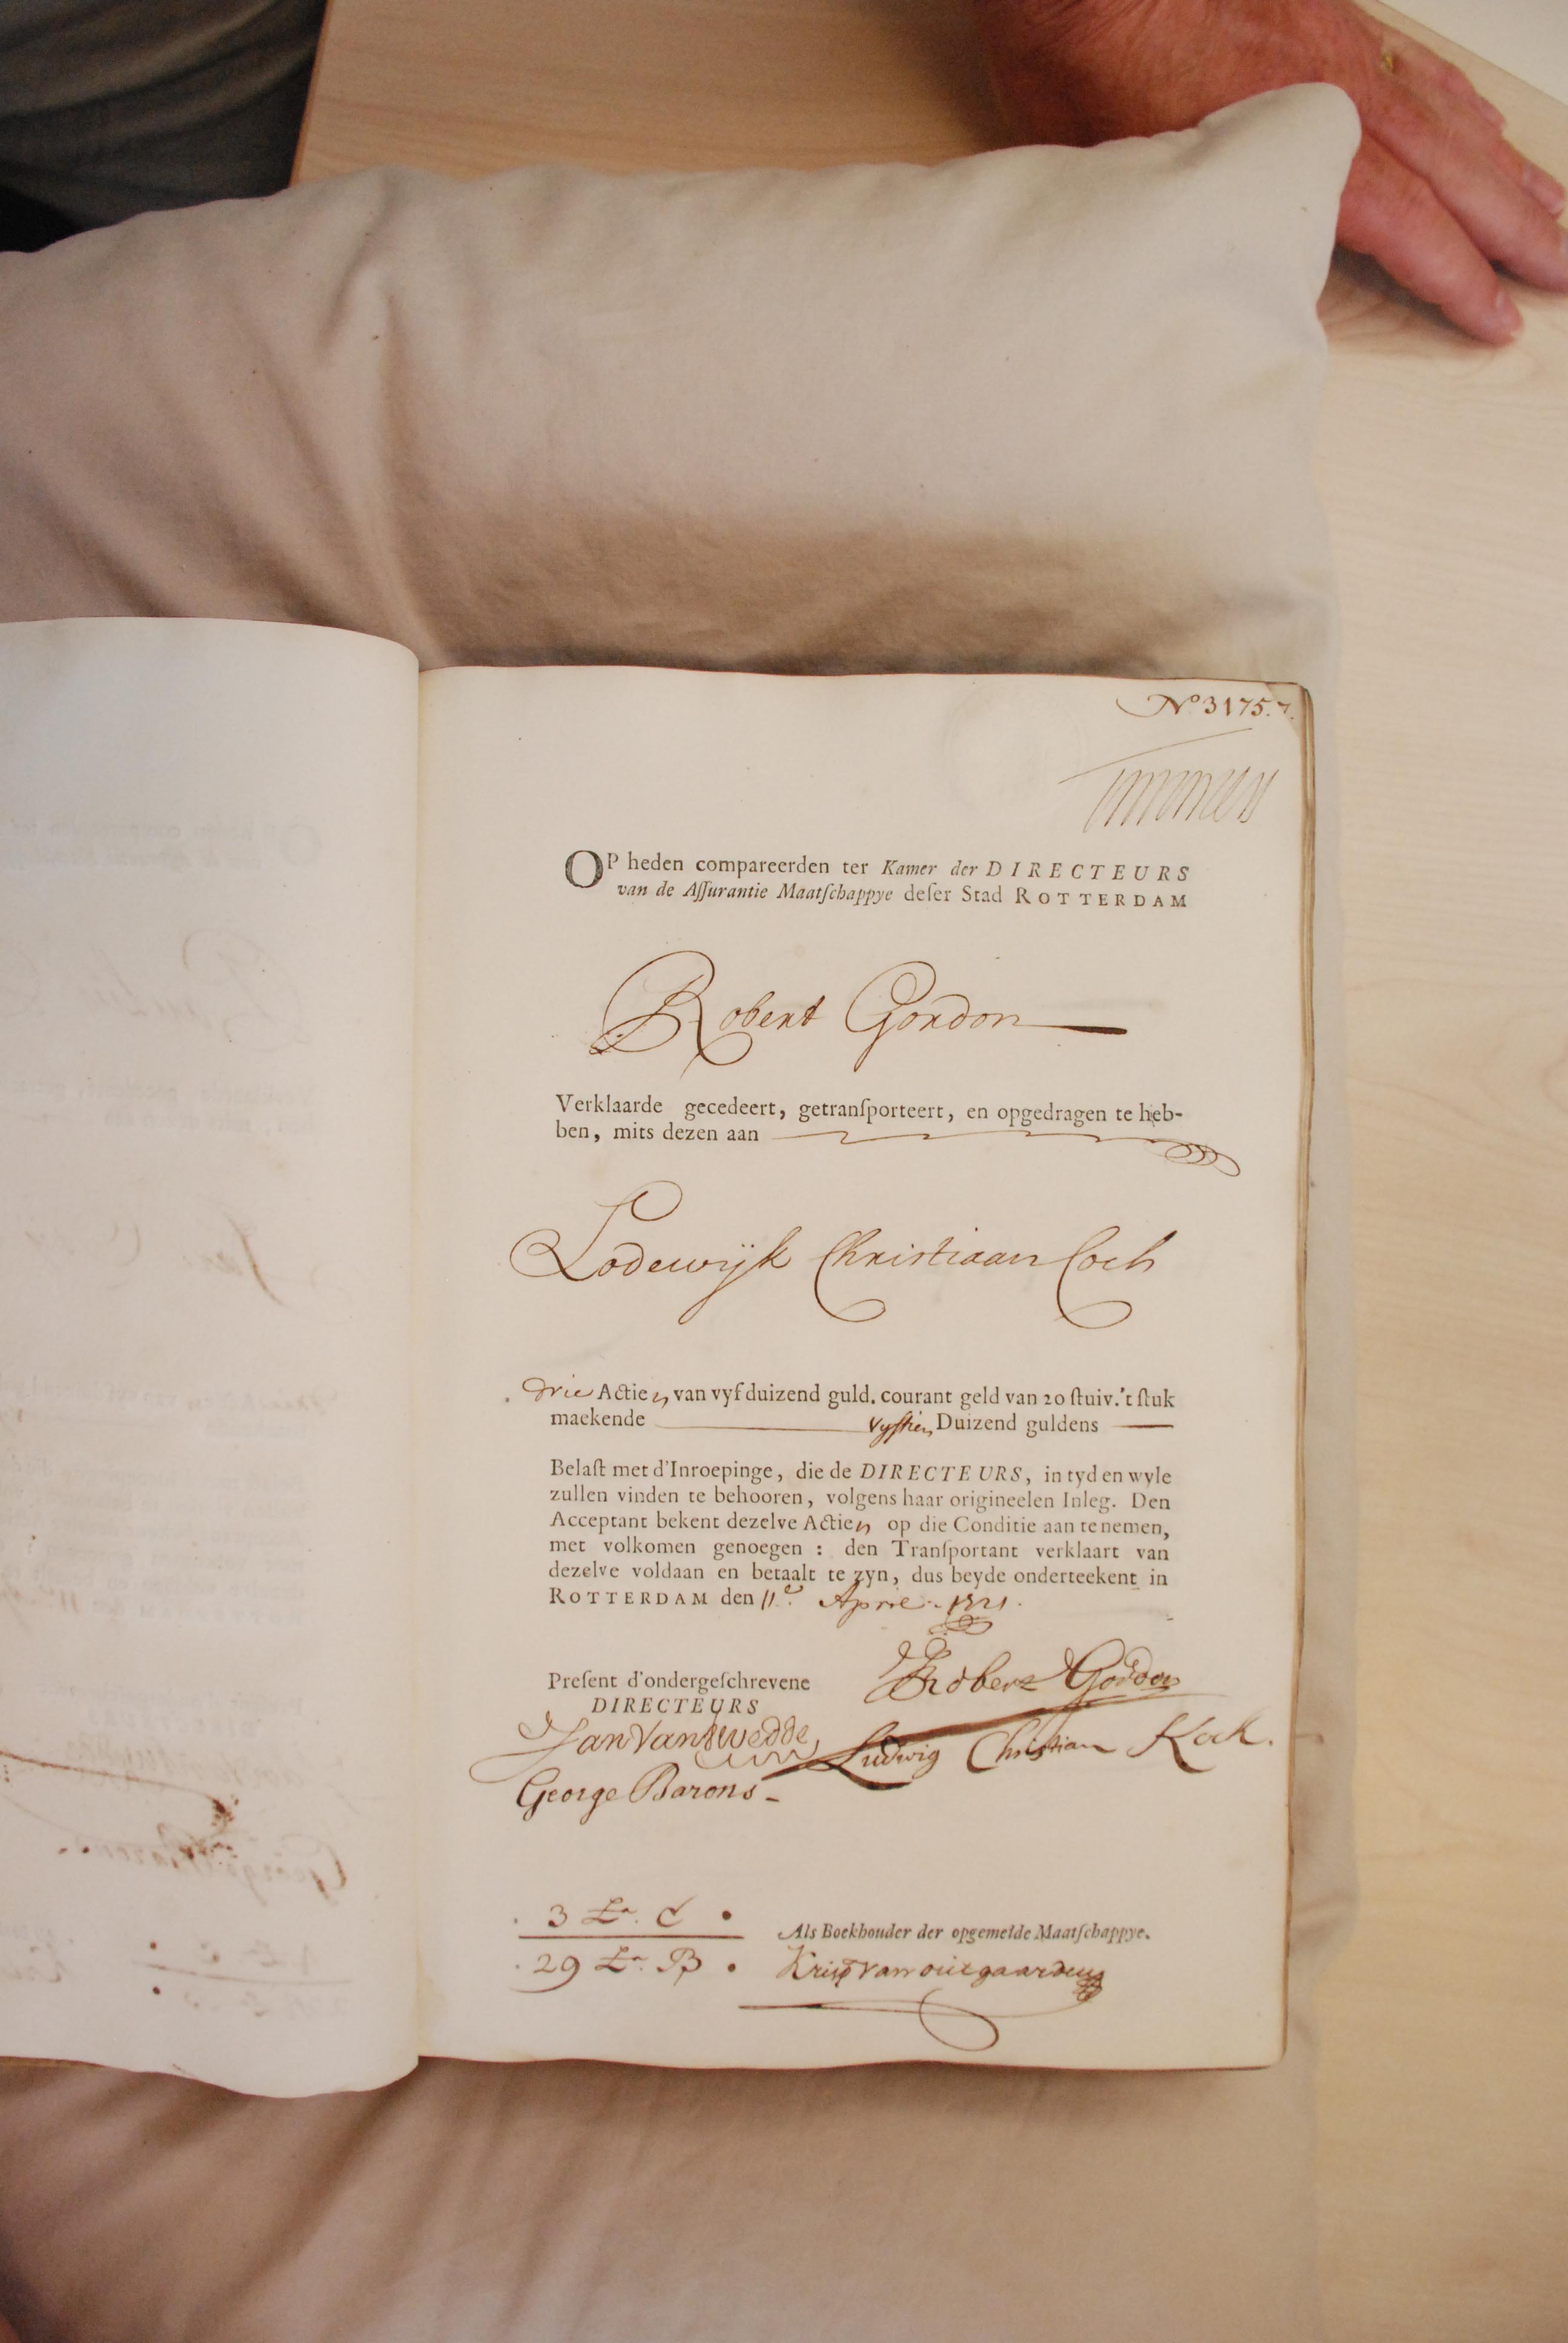 No 3175.7.
OP heden compareerden ter Kamer der DIRECTEURS
van de Aſſurantie Maatſchappye deſer Stad ROTTERDAM
Robert Gordon
Verklaarde gecedeert, getranſporteert, en opgedragen te heb-
ben, mits dezen aan
Lodewijk Christiaan Coch
drie Actien van vyf duizend guld. courant geld van 20 ſtuiv. 't ſtuk
maekende vyftien Duizend guldens
Belaſt met d'Inroepinge, die de DIRECTEURS, in tyd en wyle
zullen vinden te behooren, volgens haar origineelen Inleg. Den
Acceptant bekent dezelve Actien op die Conditie aan te nemen,
met volkomen genoegen : den Tranſportant verklaart van
dezelve voldaan en betaalt te zyn, dus beyde onderteekent in
ROTTERDAM den 11e April 1721.
Robert Gordon
Preſent d'ondergeſchrevene
DIRECTEURS
Jan Van
Ludwig Christian Kock.
George Barons
3 La. C
29 La. B
Als Boekhouder der opgemelde Maatſchappye.